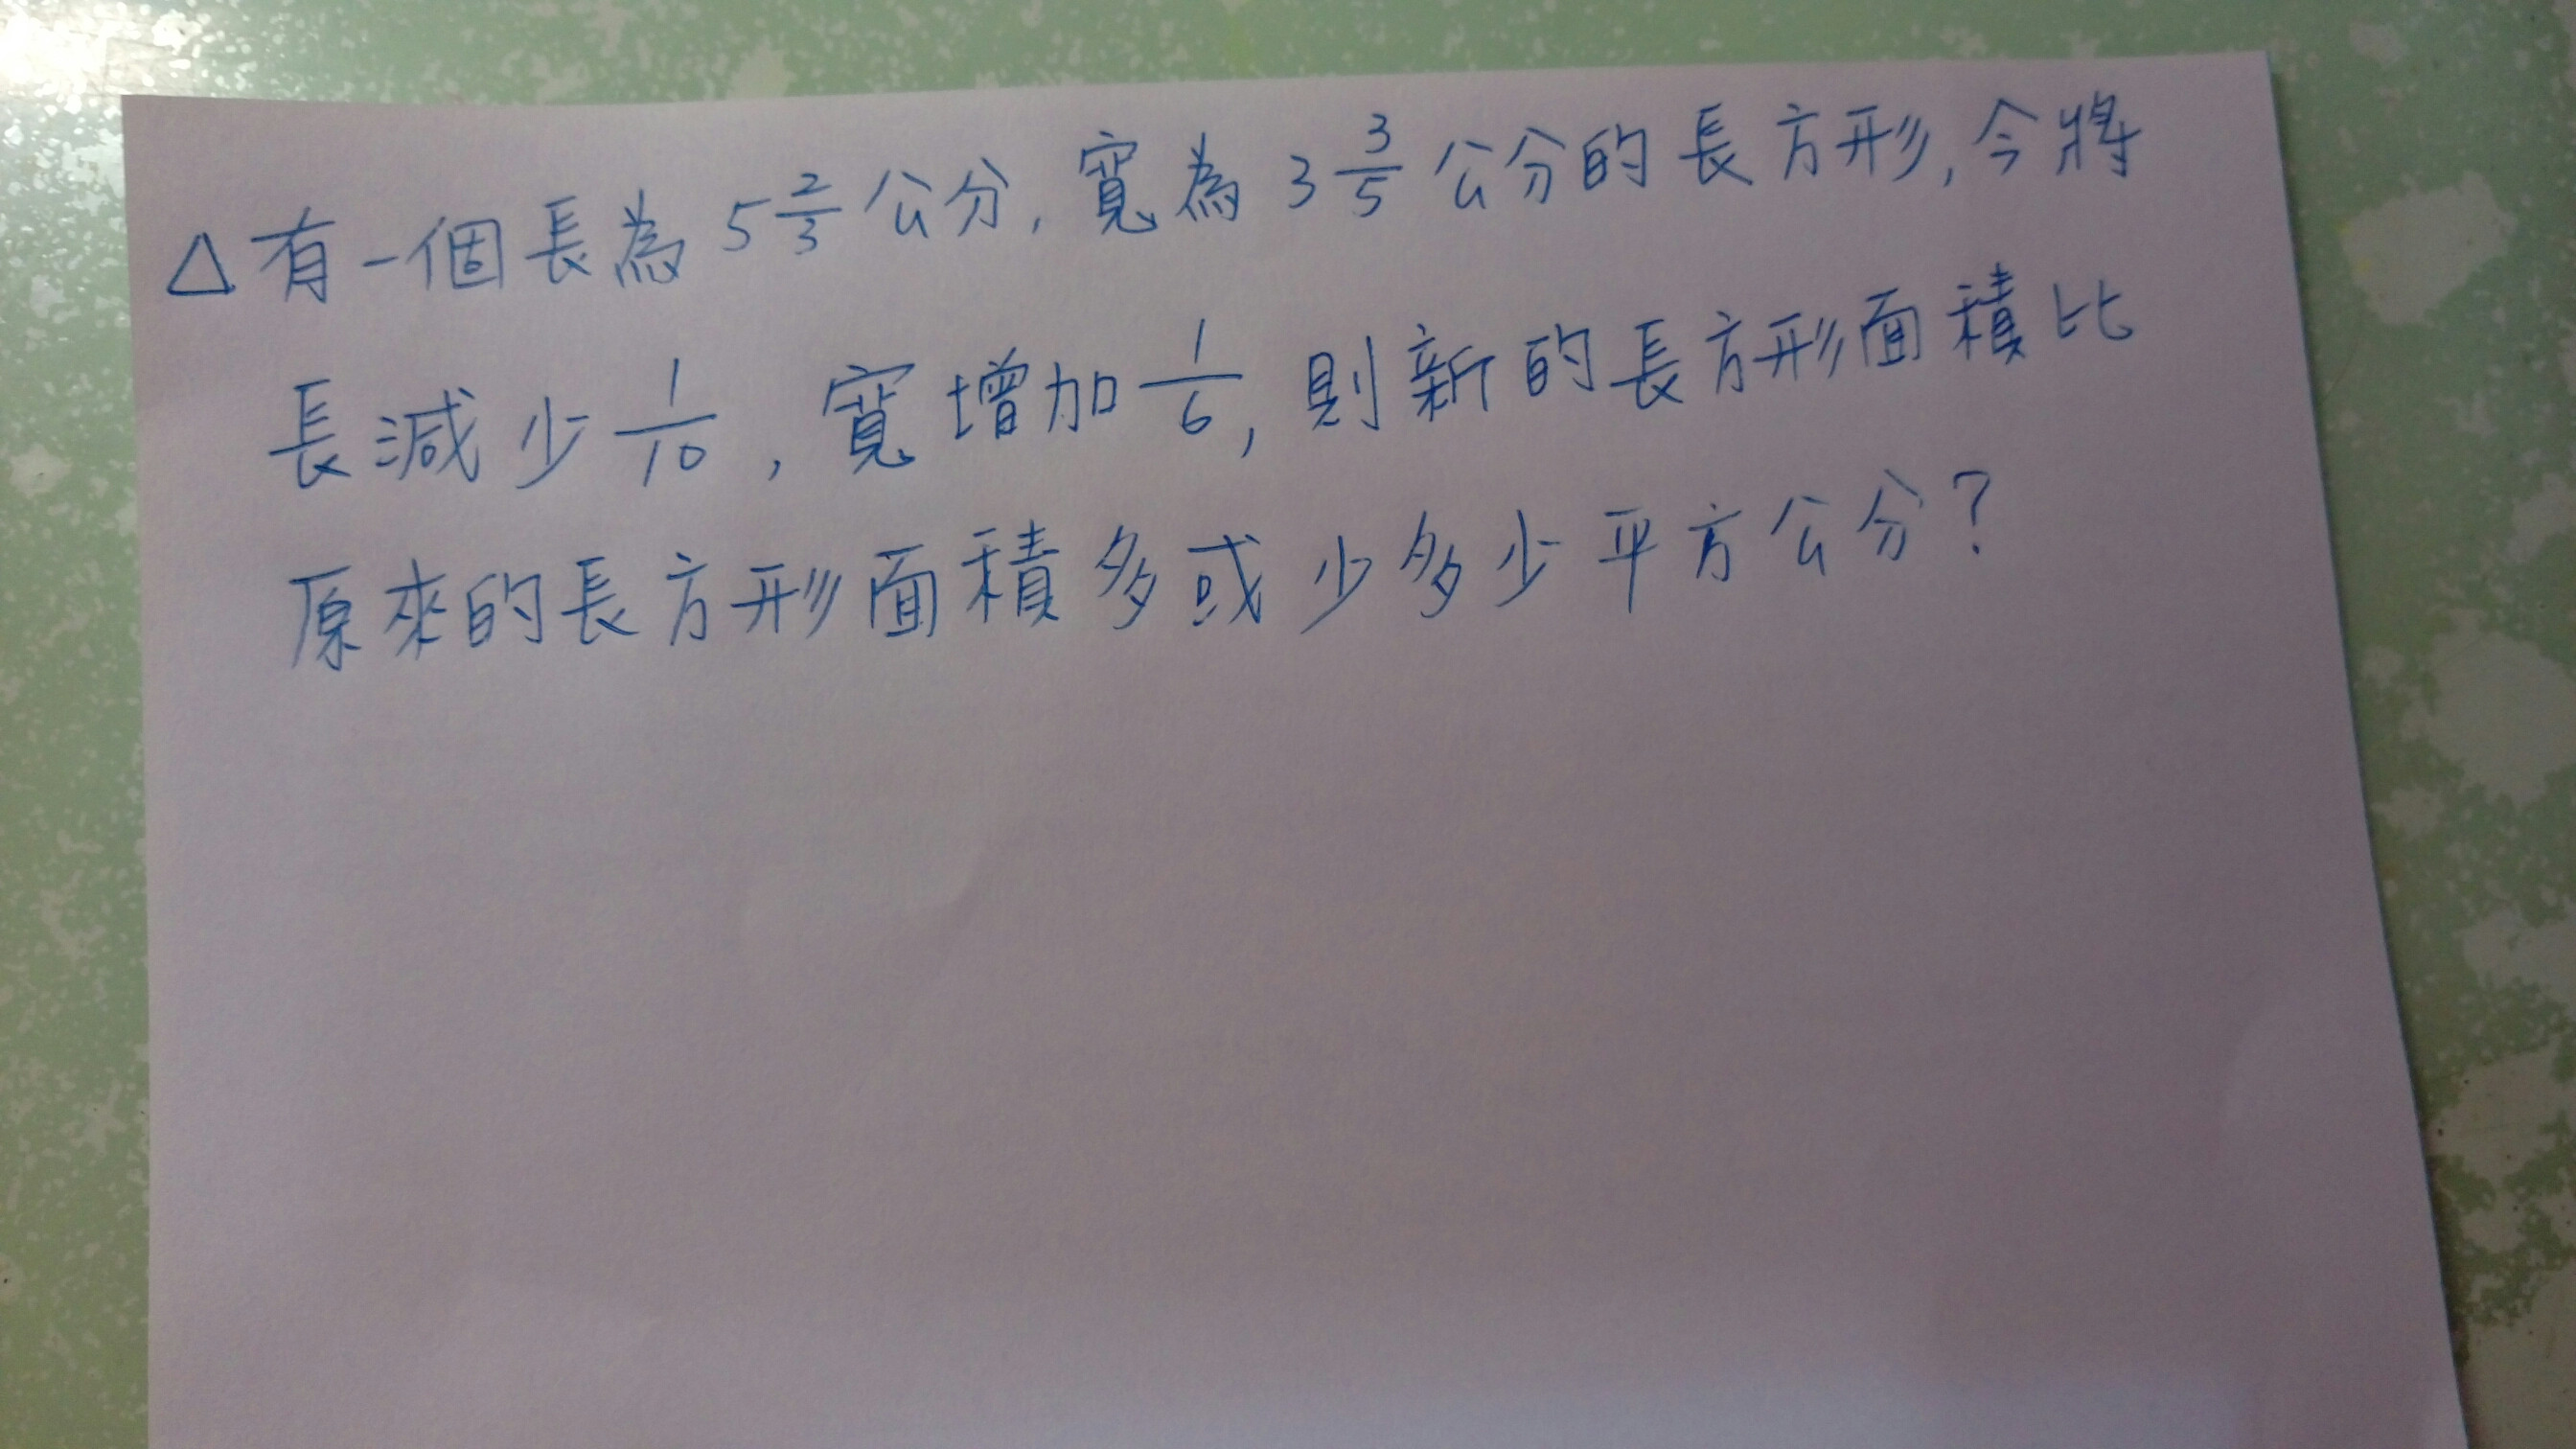 △有一個長為 5 2/3 公分, 寬為 3 3/5 公分的長方形, 今將
長減少 1/10, 寬增加 1/6, 則新的長方形面積比
原來的長方形面積多或少多少平方公分?